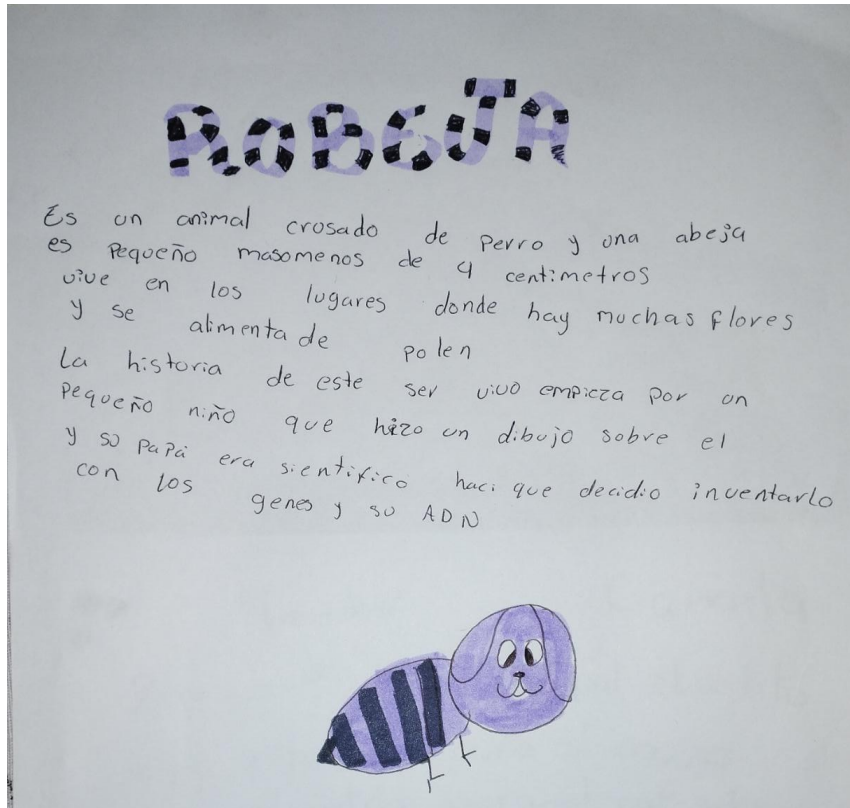 ROBEJA
Es un animal crusado de perro y una abeja
es pequeño masomenos de 4 centimetros
vive en los lugares donde hay muchas flores
y se alimenta de polen
La historia de este ser vivo empieza por un
pequeño niño que hizo un dibujo sobre el
y su papá era sientifico haci que decidio inventarlo
con los genes y su ADN